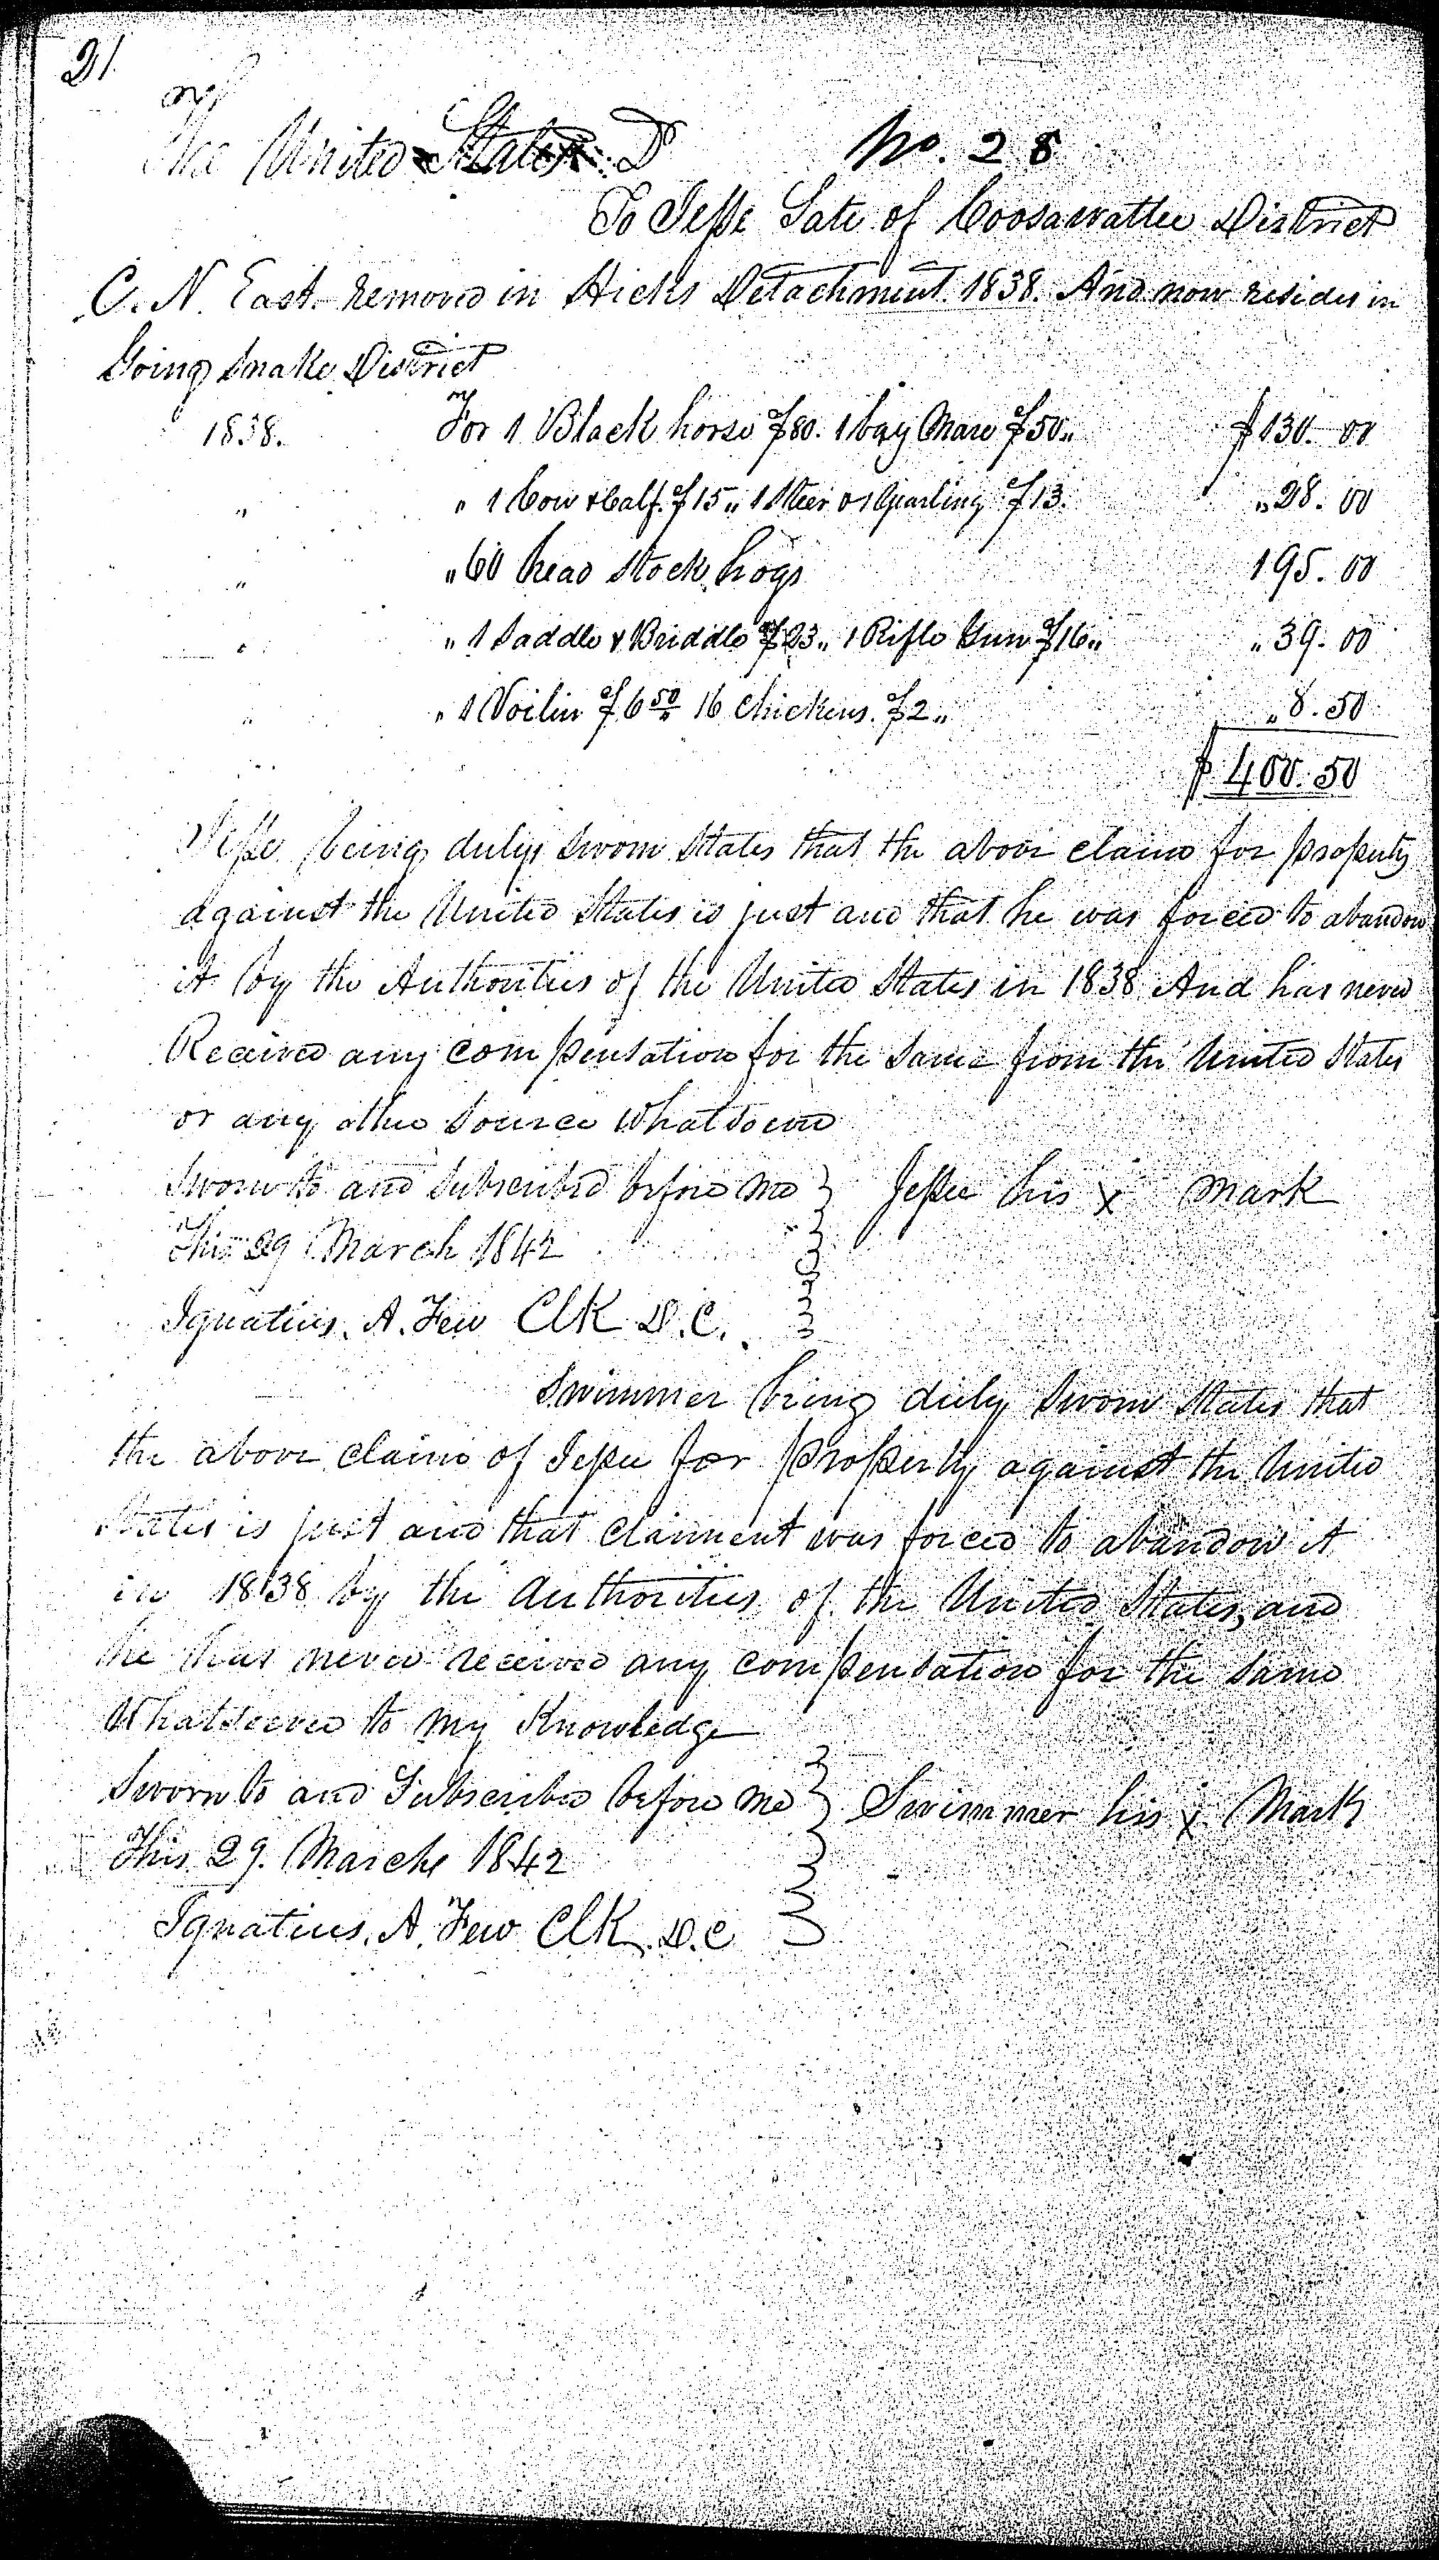 21
The United States Dr No. 28
To Jesse Late of Coosawattee District
C. N. East. removed in Hicks Detachment 1838. And now resides in
Going Snake District
1838. For 1 Black horse $80. 1 bay Mare $50„ $130.00
" " 1 Cow & Calf $15„ 1 Steer or Yearling $13. „28.00
" " 60 head Stock hogs 195.00
" " 1 Saddle & Briddle $23„ 1 Rifle Gun $16„ „39.00
" " 1 Voilin $6 50 16 Chickens. $2„ „8.50
$400.50
Jesse being duly sworn States that the above claim for property
against the United States is just and that he was forced to abandon
it by the Authorities of the United States in 1838 And has never
Received any compensation for the same from the United States
or any other source whatsoever
Sworn to and Subscribed before me } Jesse his x mark
This 29 March 1842
Ignatius. A. Few Clk D.C.
Swimmer being duly sworn States that
the above claim of Jesse for property against the United
States is just and that claiment was forced to abandon it
in 1838 by the Authorities of the United States, and
he has never received any compensation for the same
Whatsoever to my Knowledge
Sworn to and Subscribed before me } Swimmer his x Mark
This 29. March 1842
Ignatius. A. Few Clk. D.C